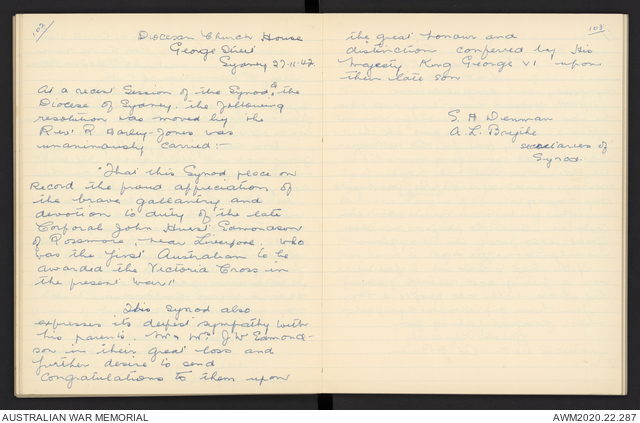 102
Diocesan Church House
George Street
Sydney 27-11-42
At a recent Session of the Synod of the
Diocese of Sydney, the following
resolution was moved by the
Rev. R Harley-Jones was
unanimously carried:-
"That this Synod place on
Record the proud appreciation of
the brave gallantry and
devotion to duty of the late
Corporal John Hurst Edmondson
of Rossmore, near Liverpool, who
was the first Australian to be
awarded the Victoria Cross in
the present war"
This Synod also
expresses its deepest sympathy with
his parents, Mr & Mrs J W Edmond-
son in their great loss and
further desire to send
Congratulations to them upon
103
the great honour and
distinction conferred by His
Majesty King George VI upon
their late son
S. H Denman
A. L. Blythe
secretaries of
Synod.
AUSTRALIAN WAR MEMORIAL
AWM2020.22.287